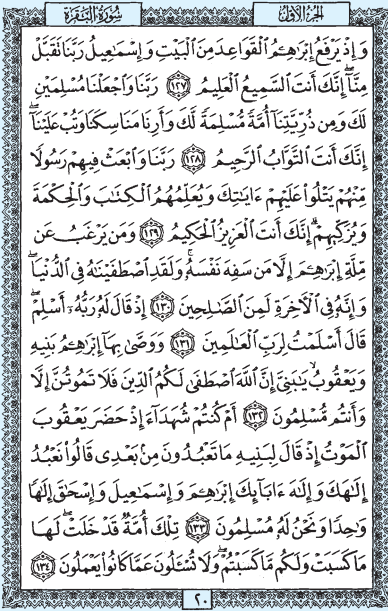 الجزء الأول
سورة البقرة
وَإِذْ يَرْفَعُ إِبْرَٰهِـۧمُ ٱلْقَوَاعِدَ مِنَ ٱلْبَيْتِ وَإِسْمَٰعِيلُ رَبَّنَا تَقَبَّلْ
مِنَّآ ۖ إِنَّكَ أَنتَ ٱلسَّمِيعُ ٱلْعَلِيمُ ١٢٧ رَبَّنَا وَٱجْعَلْنَا مُسْلِمَيْنِ
لَكَ وَمِن ذُرِّيَّتِنَآ أُمَّةً مُّسْلِمَةً لَّكَ وَأَرِنَا مَنَاسِكَنَا وَتُبْ عَلَيْنَآ ۖ
إِنَّكَ أَنتَ ٱلتَّوَّابُ ٱلرَّحِيمُ ١٢٨ رَبَّنَا وَٱبْعَثْ فِيهِمْ رَسُولًا
مِّنْهُمْ يَتْلُوا۟ عَلَيْهِمْ ءَايَٰتِكَ وَيُعَلِّمُهُمُ ٱلْكِتَٰبَ وَٱلْحِكْمَةَ
وَيُزَكِّيهِمْ ۚ إِنَّكَ أَنتَ ٱلْعَزِيزُ ٱلْحَكِيمُ ١٢٩ وَمَن يَرْغَبُ عَن
مِّلَّةِ إِبْرَٰهِـۧمَ إِلَّا مَن سَفِهَ نَفْسَهُۥ ۚ وَلَقَدِ ٱصْطَفَيْنَٰهُ فِى ٱلدُّنْيَا ۖ
وَإِنَّهُۥ فِى ٱلْـَٔاخِرَةِ لَمِنَ ٱلصَّٰلِحِينَ ١٣٠ إِذْ قَالَ لَهُۥ رَبُّهُۥٓ أَسْلِمْ ۖ
قَالَ أَسْلَمْتُ لِرَبِّ ٱلْعَٰلَمِينَ ١٣١ وَوَصَّىٰ بِهَآ إِبْرَٰهِـۧمُ بَنِيهِ
وَيَعْقُوبُ يَٰبَنِىَّ إِنَّ ٱللَّهَ ٱصْطَفَىٰ لَكُمُ ٱلدِّينَ فَلَا تَمُوتُنَّ إِلَّا
وَأَنتُم مُّسْلِمُونَ ١٣٢ أَمْ كُنتُمْ شُهَدَآءَ إِذْ حَضَرَ يَعْقُوبَ
ٱلْمَوْتُ إِذْ قَالَ لِبَنِيهِ مَا تَعْبُدُونَ مِنۢ بَعْدِى قَالُوا۟ نَعْبُدُ
إِلَٰهَكَ وَإِلَٰهَ ءَابَآئِكَ إِبْرَٰهِـۧمَ وَإِسْمَٰعِيلَ وَإِسْحَٰقَ إِلَٰهًا
وَٰحِدًا وَنَحْنُ لَهُۥ مُسْلِمُونَ ١٣٣ تِلْكَ أُمَّةٌ قَدْ خَلَتْ ۖ لَهَا
مَا كَسَبَتْ وَلَكُم مَّا كَسَبْتُمْ ۖ وَلَا تُسْـَٔلُونَ عَمَّا كَانُوا۟ يَعْمَلُونَ ١٣٤
٢٠